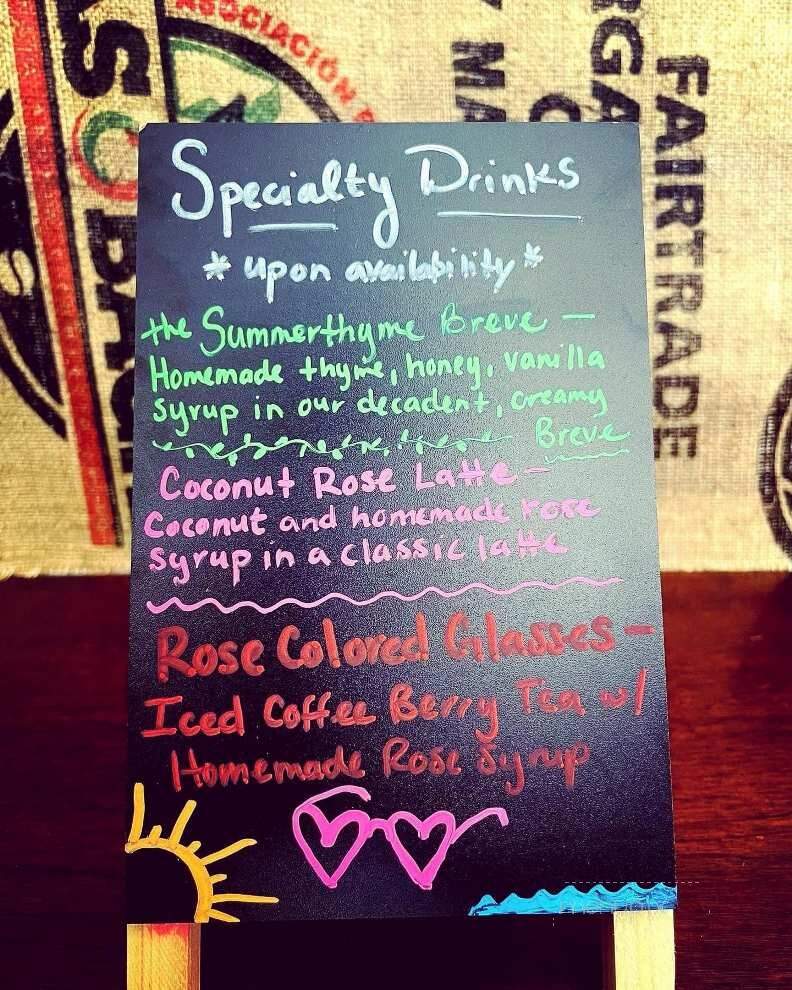 ASOCIACIÓN
FAIRTRADE
Specialty Drinks
* upon availability *
the Summerthyme Breve -
Homemade thyme, honey, vanilla
syrup in our decadent, creamy
Breve
Coconut Rose Latte -
Coconut and homemade rose
syrup in a classic latte
Rose Colored Glasses -
Iced Coffee Berry Tea w/
Homemade Rose Syrup